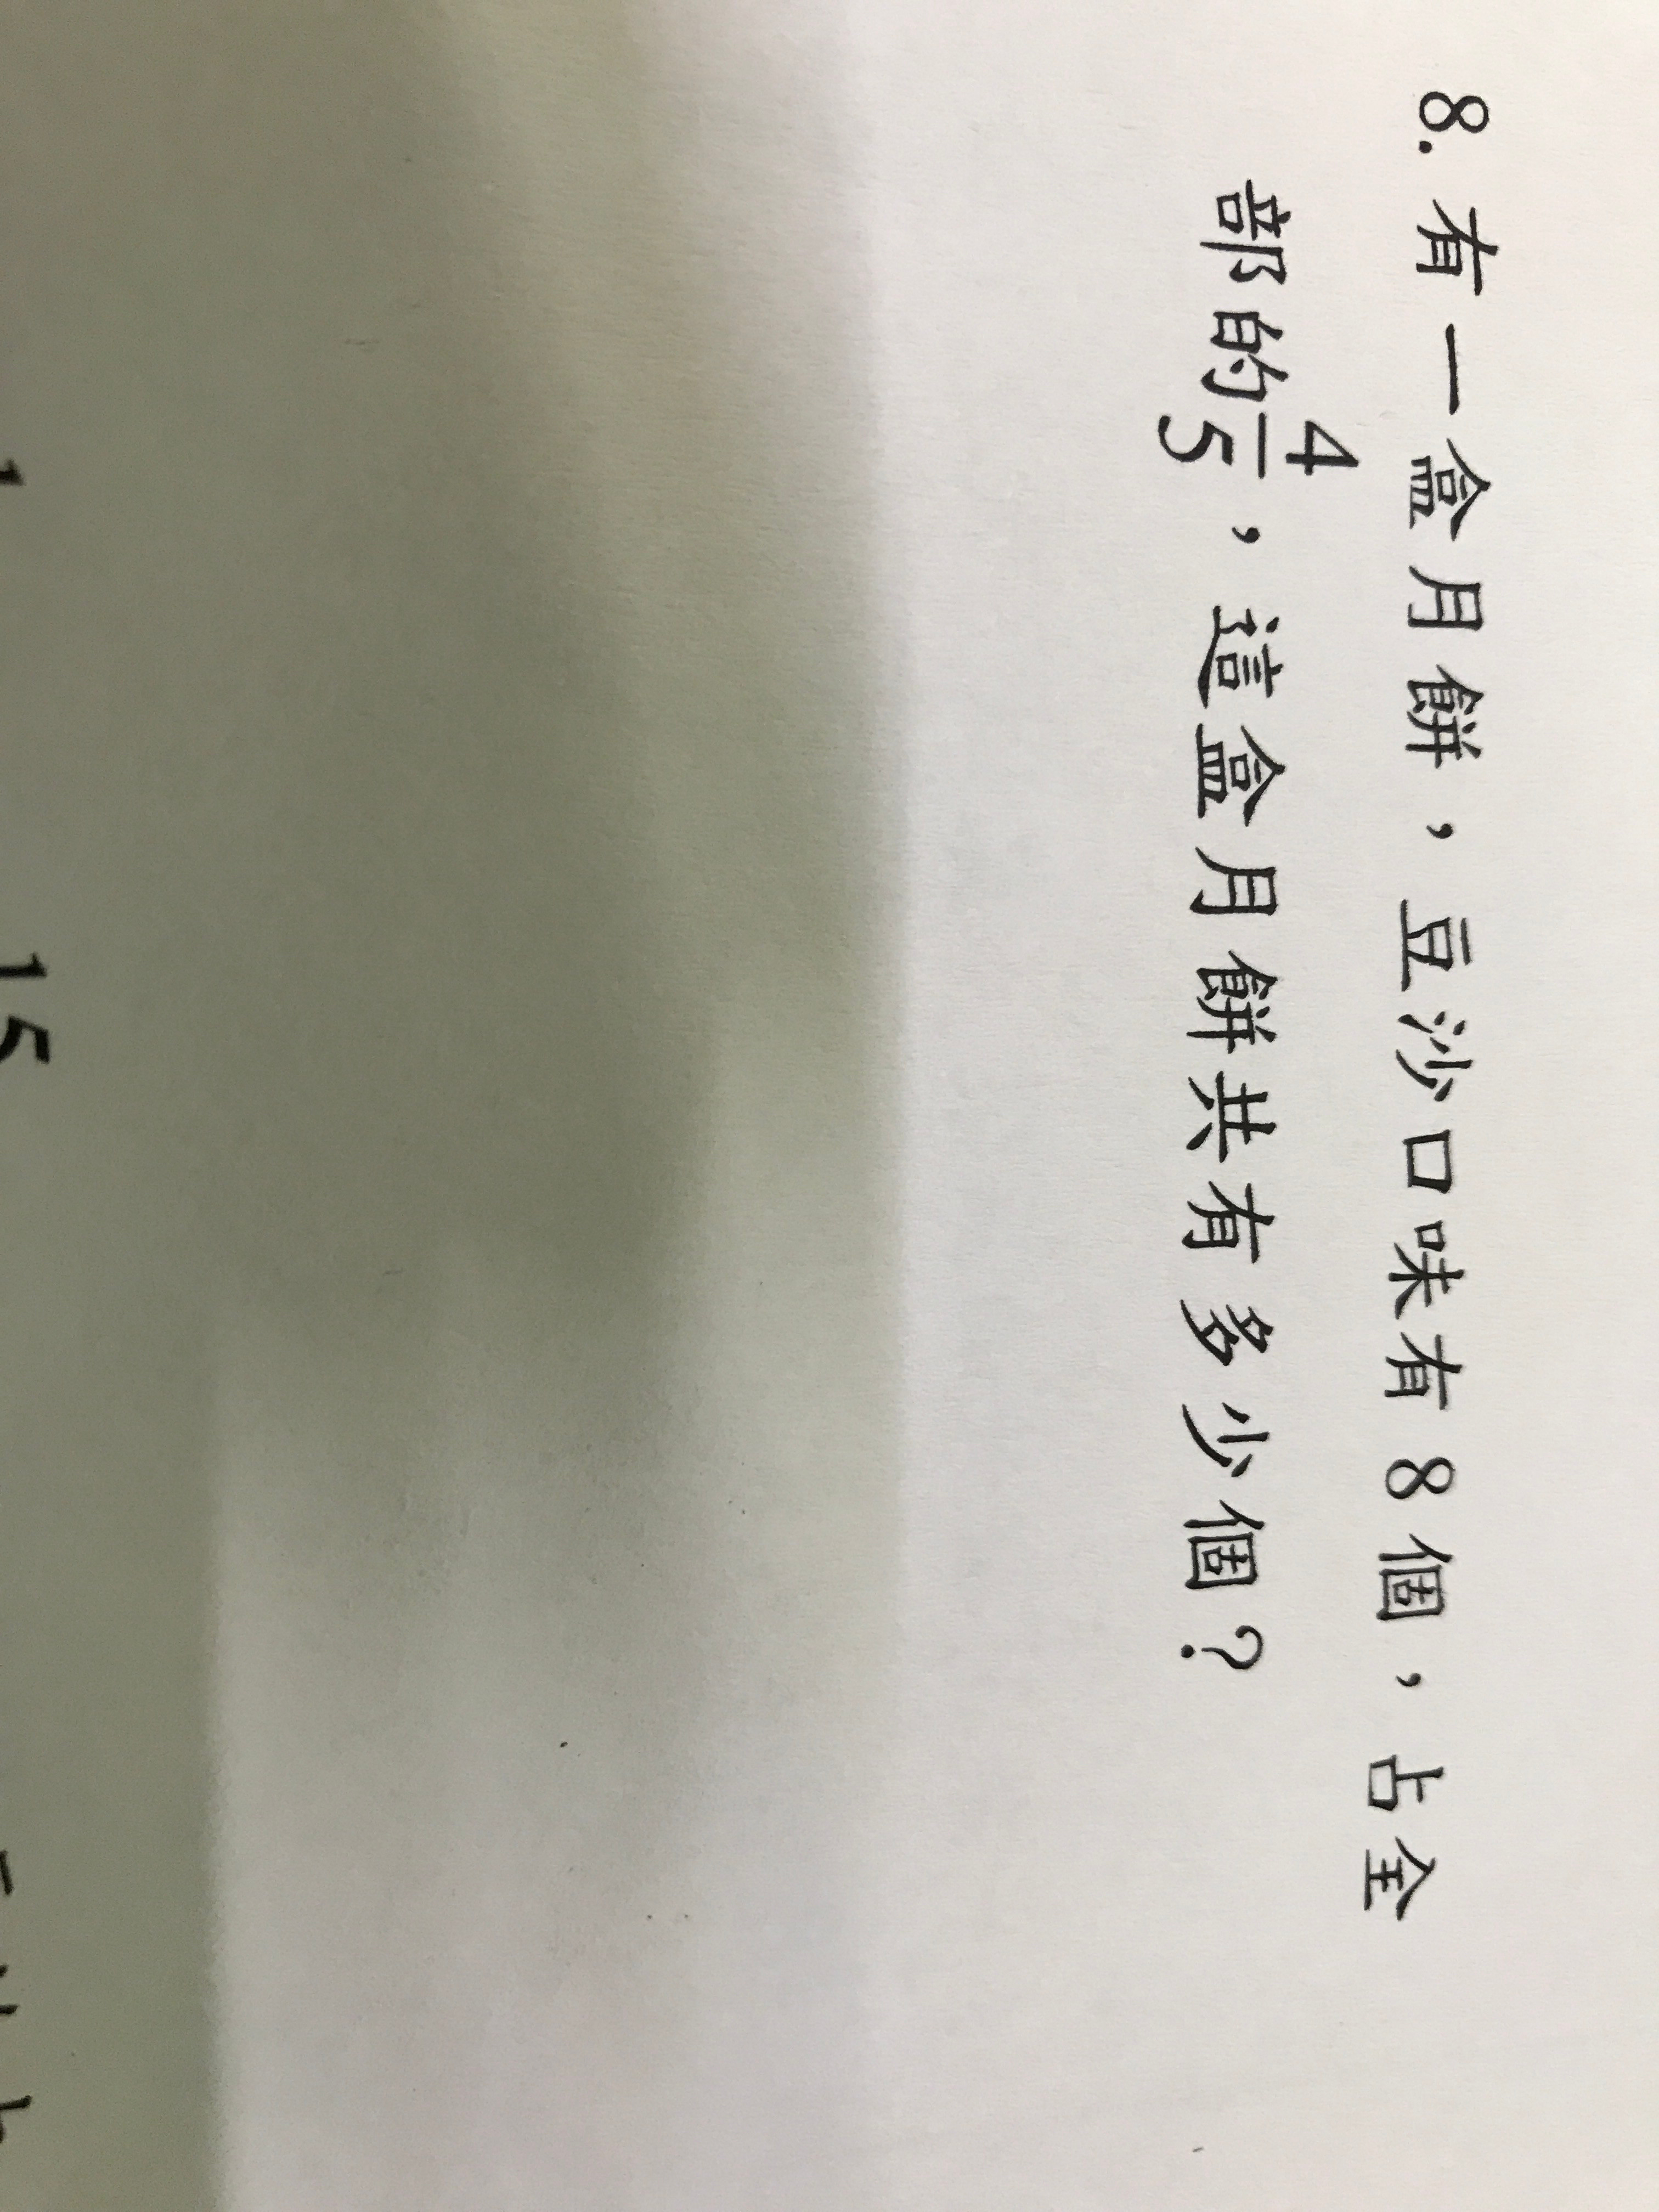 8. 有一盒月餅，豆沙口味有 8 個，占全
部的 4/5，這盒月餅共有多少個？
1 15